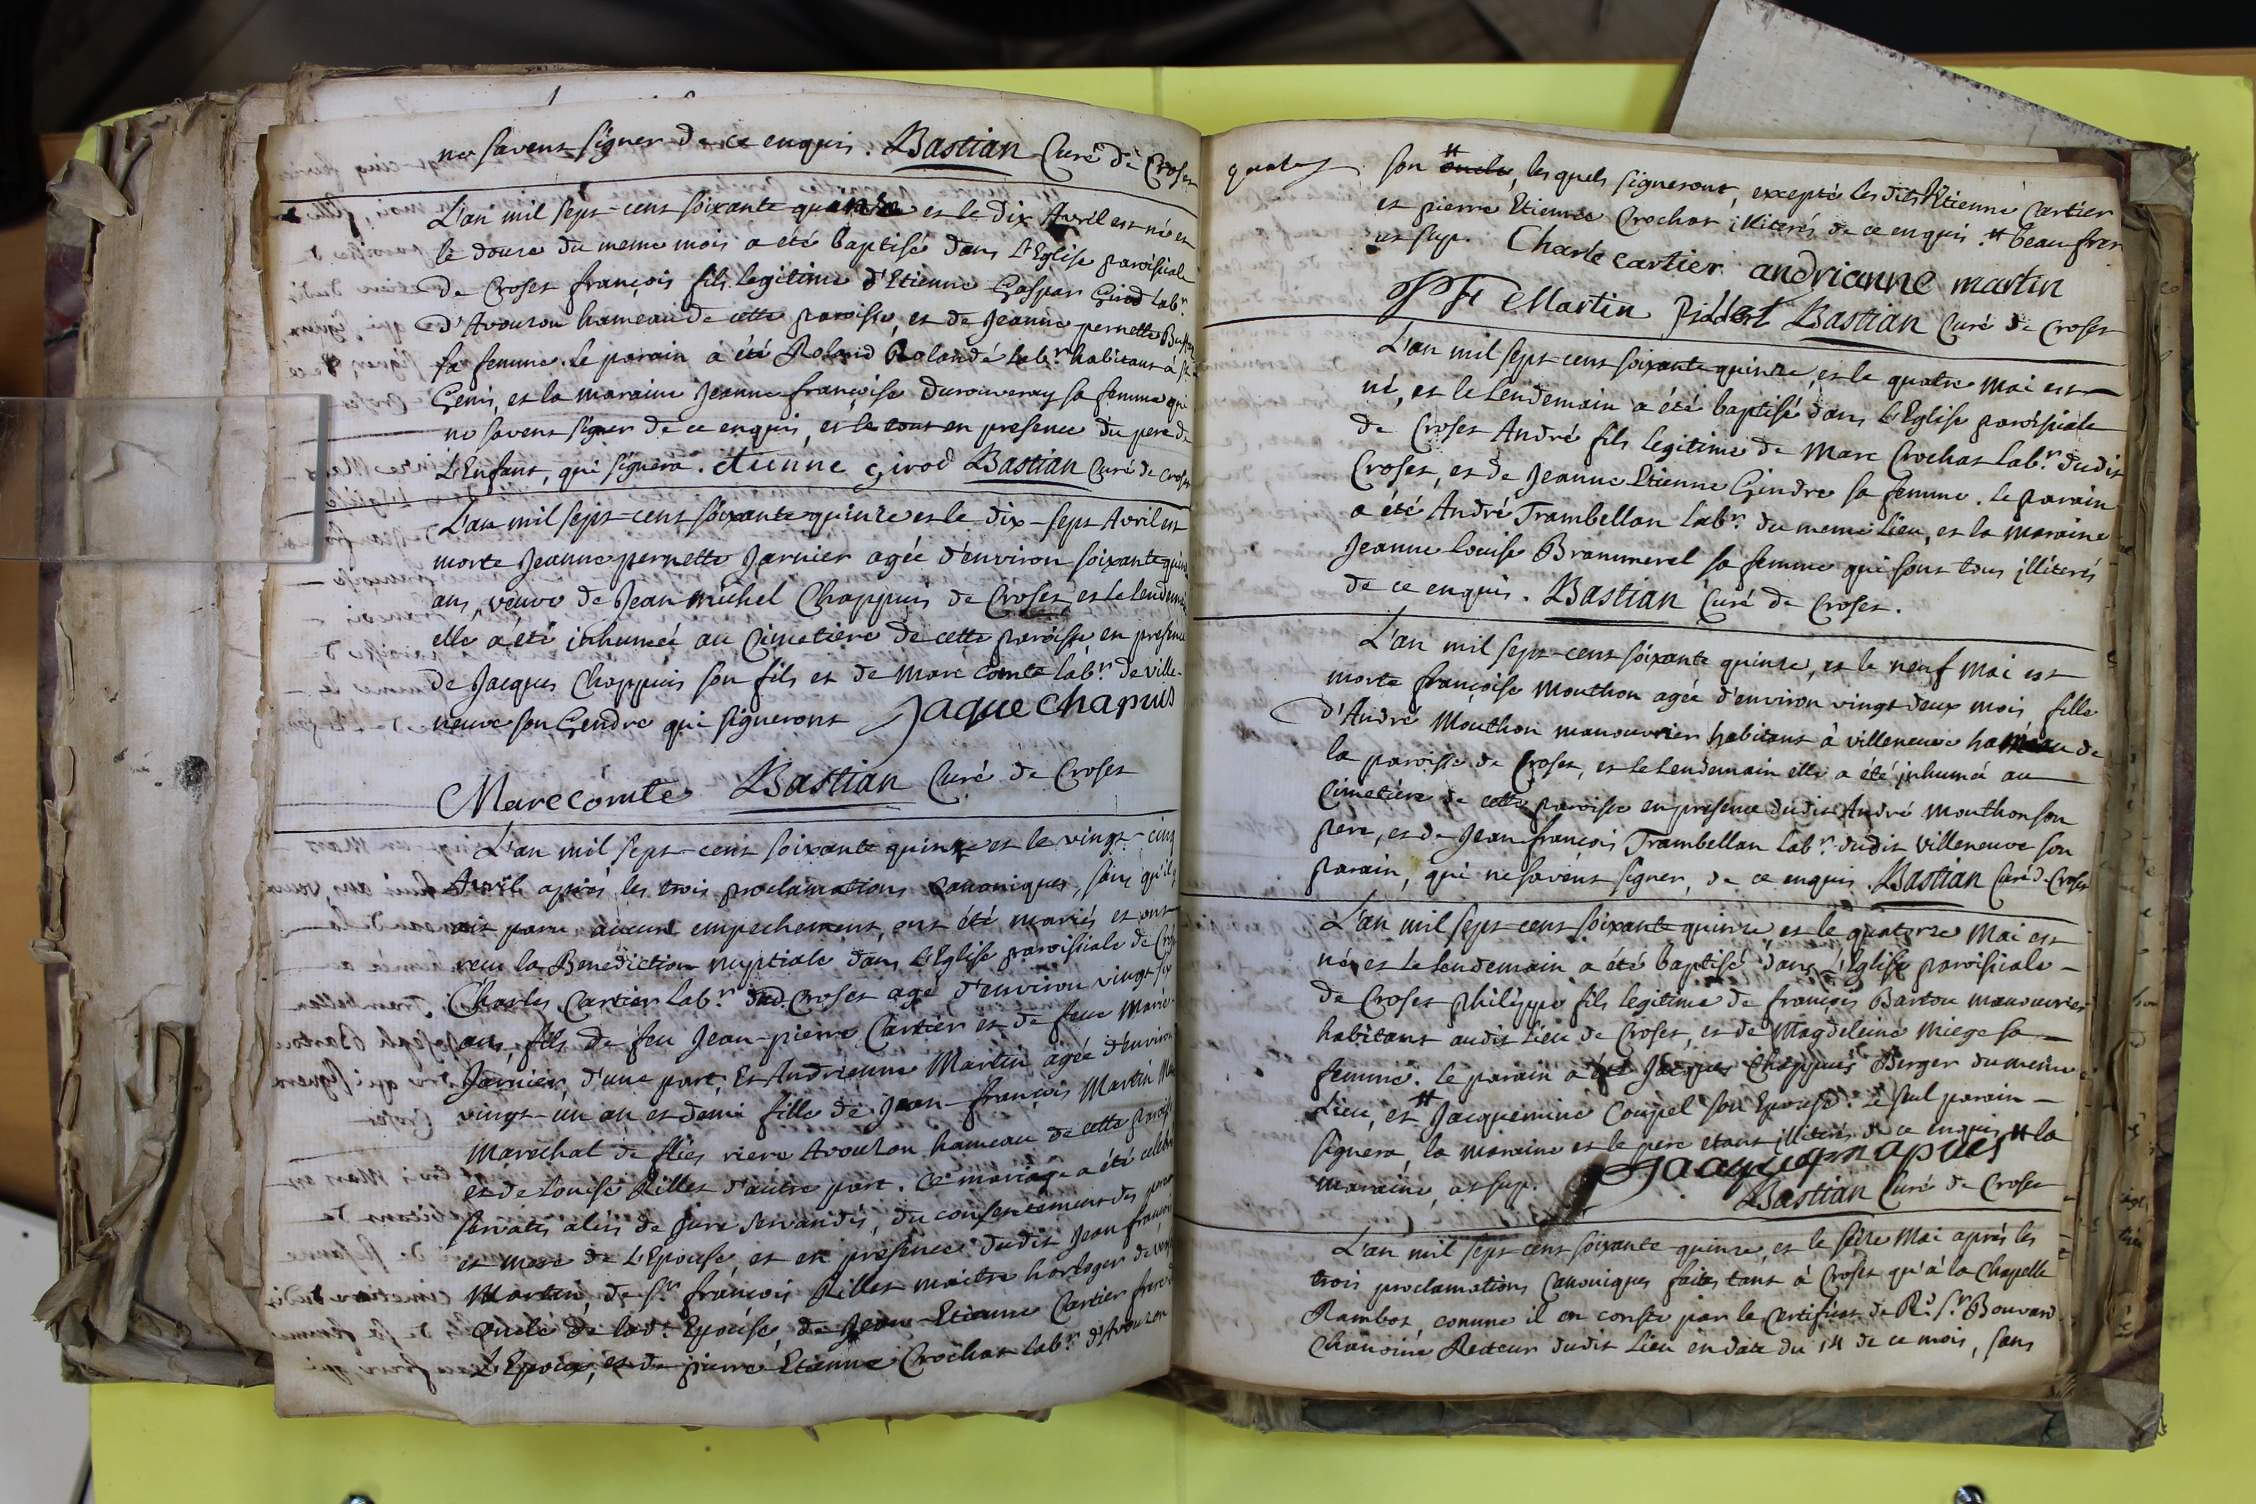 ne savent signer de ce enquis. Bastian Curé de Croset
L'an mil sept-cent soixante quinze et le dix Avril est né et
le douze du meme mois a été baptisé dans L'Eglise paroissiale
de Croset françois fils legitime d'Etienne Gaspar Girod Labr.
d'Avouzon hameau de cette paroisse, et de Jeanne pernette
sa femme. le parain a été Roland Rolandé Labr. habitant à St
Genis, et la maraine Jeanne françoise Durouveray sa femme qui
ne savent signer de ce enquis, et le tout en presence du pere de
L'Enfant, qui signera. etienne girod Bastian Curé de Croset
L'an mil sept-cent soixante quinze et le dix-sept Avril est
morte Jeanne pernette Jarnier agée d'environ soixante quinze
ans, veuve de Jean michel Chappuis de Croset, et le lendemain
elle a été inhumée au Cimetière de cette paroisse en presence
de Jacques Chappuis son fils et de Marc Comte Labr. de ville-
neuve son Gendre qui signeront Jaque Chapuis
Marc comte Bastian Curé de Croset
L'an mil sept-cent soixante quinze et le vingt-cinq
Avril après les trois proclamations Canoniques, sans qu'il
ait paru aucun empechement, ont été mariés et ont
reçu la Benediction nuptiale dans L'Eglise paroissiale de Croset
Charles Cartier Labr. dud. Croset agé d'environ vingt-six
ans, fils de feu Jean-pierre Cartier et de feue Marie
Jarnier, d'une part, Et Andrienne Martin agée d'environ
vingt-un an et demi fille de Jean-françois Martin
Marechal de flies riere Avouzon hameau de cette paroisse
et de Louise Rillet d'autre part. Ce mariage a été celebré
servatis aliis de jure servandis, du consentement des pere
et mere de L'Epouse, et en presence dudit Jean françois
Martin, de Sr. françois Rillet maitre horloger de
oncle de lad. Epouse, de Jean-Etienne Cartier frere de
L'Epoux, et de pierre Etienne Crochat Labr. d'Avouzon
son # oncle, les quels signeront, excepté les dits Etienne Cartier
et pierre Etienne Crochat illiterés de ce enquis. # beau frere
ut sup. Charle cartier andrianne martin
Martin Bastian Curé de Croset
L'an mil sept-cent soixante quinze, et le quatre Mai est
né, et le Lendemain a été baptisé dans L'Eglise paroissiale
de Croset André fils legitime de Marc Crochat Labr. dudit
Croset, et de Jeanne Etienne Gindre sa femme. le parain
a été André Trambellan Labr. du meme Lieu, et la maraine
Jeanne Louise Brammerel sa femme qui sont tous illiterés
de ce enquis. Bastian Curé de Croset.
L'an mil sept-cent soixante quinze, et le neuf Mai est
morte françoise Mouthon agée d'environ vingt deux mois, fille
d'André Mouthon manouvrier habitant à villeneuve hameau de
la paroisse de Croset, et le Lendemain elle a été inhumée au
Cimetière de cette paroisse en presence dudit André Mouthon son
pere, et de Jean françois Trambellan Labr. dudit Villeneuve son
parain, qui ne savent signer, de ce enquis. Bastian Curé de Croset
L'an mil sept-cent soixante quinze, et le quatorze Mai est
né, et le Lendemain a été baptisé dans L'Eglise paroissiale
de Croset philippe fils legitime de françois Barton manouvrier
habitant audit Lieu de Croset, et de Magdeleine Miege sa
femme. le parain a été Jacques Chappuis Berger du meme
Lieu, et # Jacquemine Coupel son Epouse. Le seul parain
signera, la maraine et le pere etant illiterés de ce enquis. # la
maraine, ut sup. Jaque chapuis
Bastian Curé de Croset
L'an mil sept-cent soixante quinze, et le seize Mai après les
trois proclamations Canoniques faites tant à Croset qu'à la Chapelle
Rambos, comme il en conste par le Certificat de Rd. Sr. Bouvard
Chanoine Recteur dudit Lieu en date du 14 de ce mois, sans